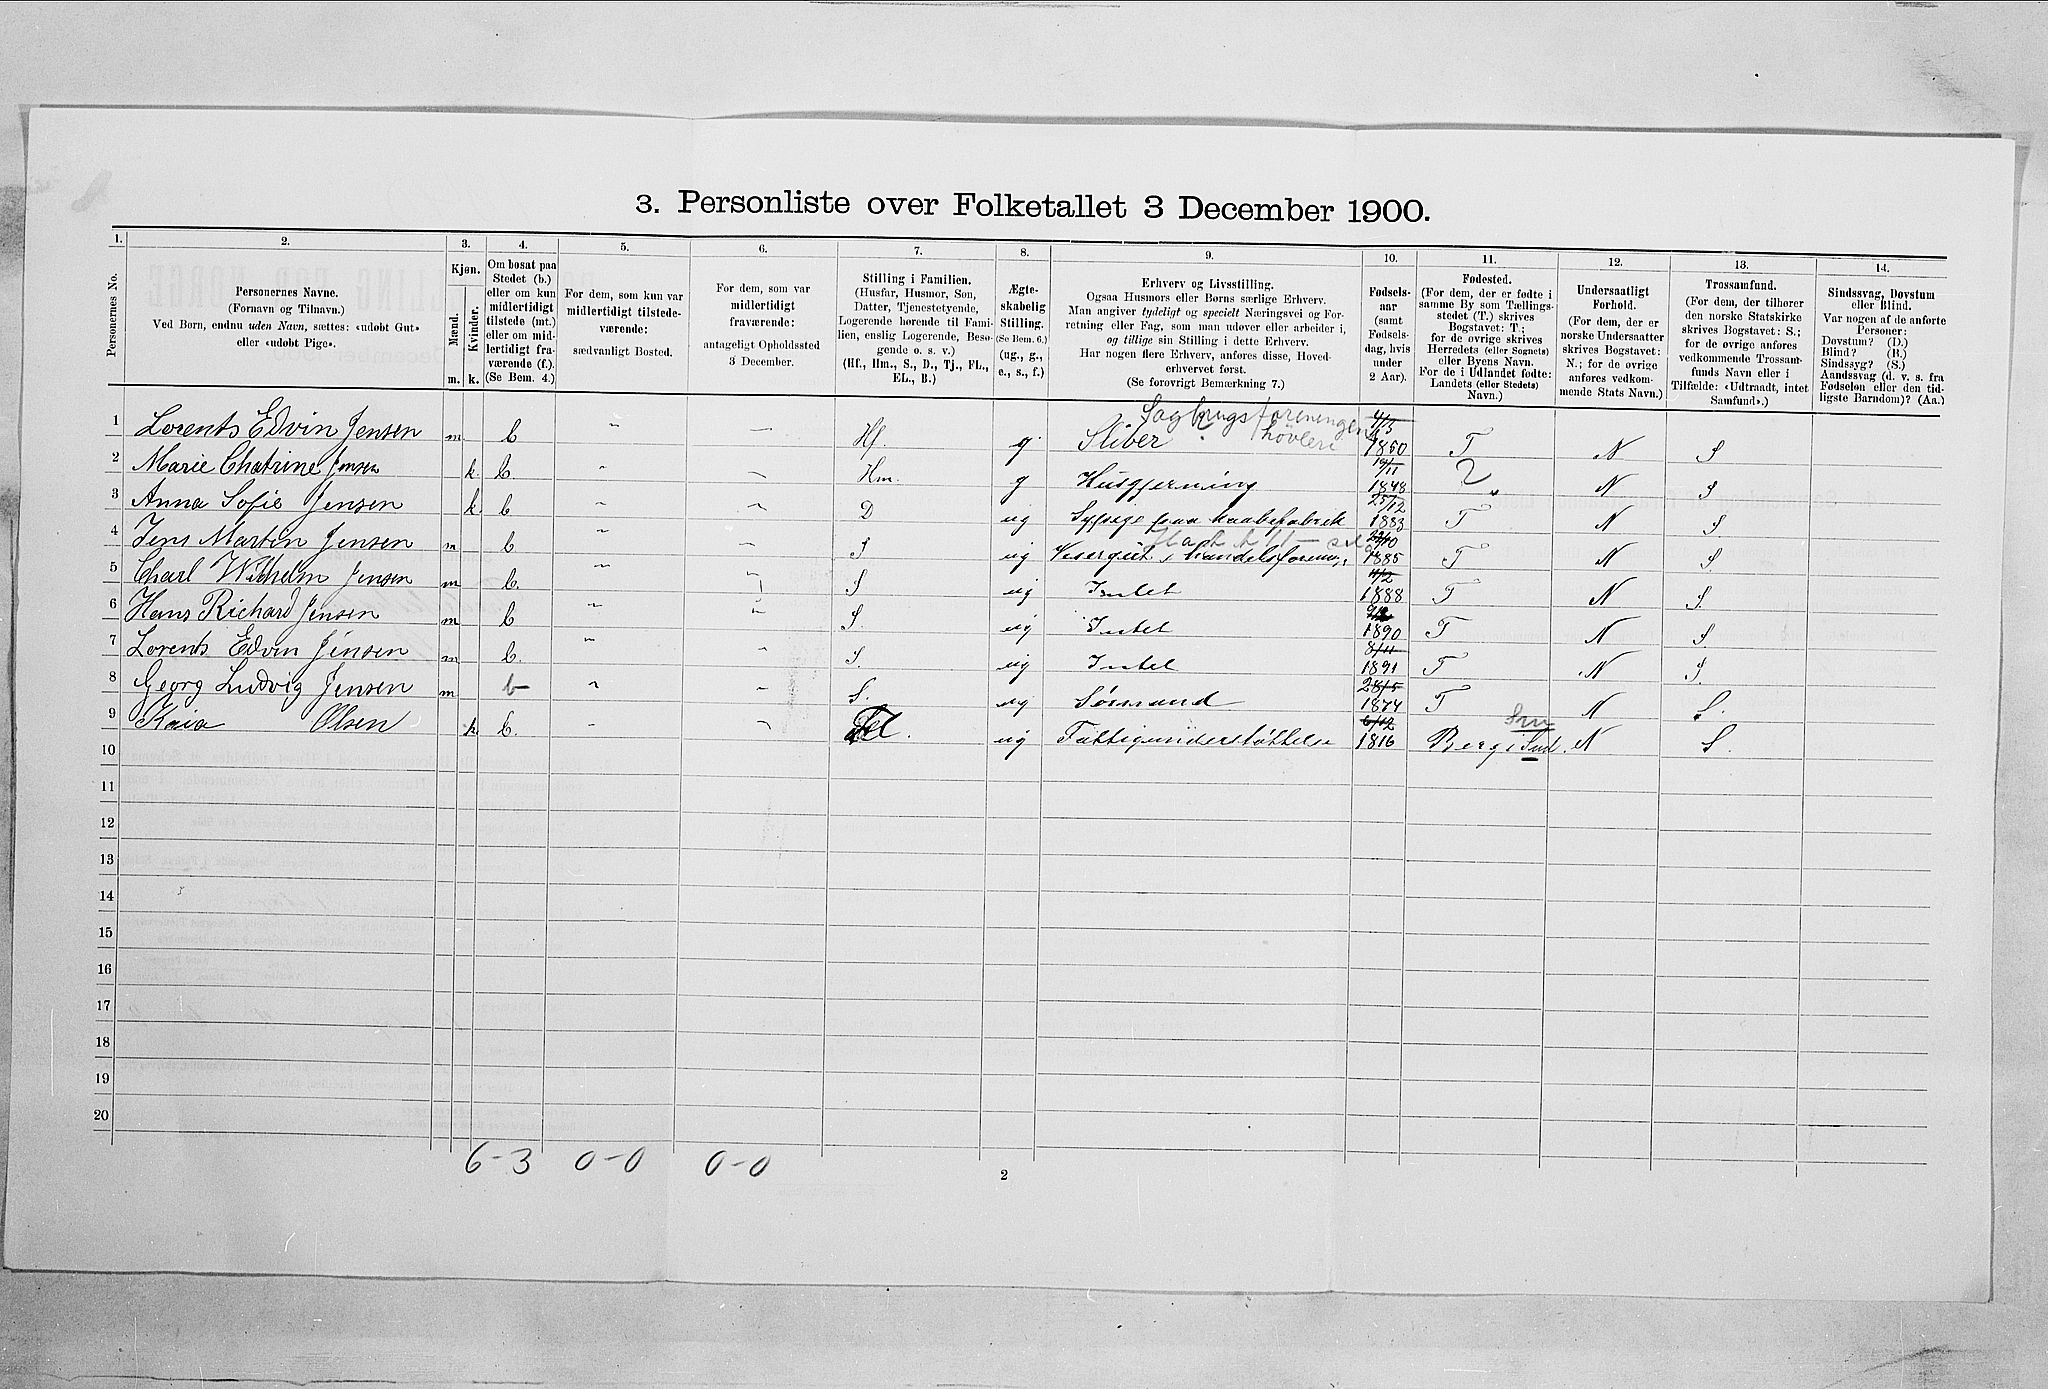 3. Personliste over Folketallet 3 December 1900.
1. 2. 3. 4. 5. 6. 7. 8. 9. 10. 11. 12. 13. 14.
Personernes No.
Personernes Navne.
(Fornavn og Tilnavn.)
Ved Børn, endnu uden Navn, sættes: «udøbt Gut»
eller «udøbt Pige».
Kjøn.
Mænd.
Kvinder.
m. k.
Om bosat paa
Stedet (b.)
eller om kun
midlertidigt
tilstede (mt.)
eller om mid-
lertidigt fra-
værende (f.).
(Se Bem. 4.)
For dem, som kun var
midlertidigt tilstede-
værende:
sædvanligt Bosted.
For dem, som var
midlertidigt
fraværende:
antageligt Opholdssted
3 December.
Stilling i Familien.
(Husfar, Husmor, Søn,
Datter, Tjenestetyende,
Logerende hørende til Fami-
lien, enslig Logerende, Besø-
gende o. s. v.)
(Hf., Hm., S., D., Tj., FL.,
EL., B.)
Ægte-
skabelig
Stilling.
(Se Bem. 6.)
(ug., g.,
e., s., f.)
Erhverv og Livsstilling.
Ogsaa Husmors eller Børns særlige Erhverv.
Man angiver tydeligt og specielt Næringsvei og For-
retning eller Fag, som man udøver eller arbeider i,
og tillige sin Stilling i dette Erhverv.
Har nogen flere Erhverv, anføres disse, Hoved-
erhvervet først.
(Se forøvrigt Bemærkning 7.)
Fødsels-
aar
(samt
Fødsels-
dag, hvis
under
2 Aar).
Fødested.
(For dem, der er fødte i
samme By som Tællings-
stedet (T.) skrives
Bogstavet: T.;
for de øvrige skrives
Herredets (eller Sognets)
eller Byens Navn.
For de i Udlandet fødte:
Landets (eller Stedets)
Navn.)
Undersaatligt
Forhold.
(For dem, der er
norske Undersaatter
skrives Bogstavet:
N.; for de øvrige
anføres vedkom-
mende Stats Navn.)
Trossamfund.
(For dem, der tilhører
den norske Statskirke
skrives Bogstavet: S.;
for de øvrige anføres
vedkommende Trossam-
funds Navn eller i
Tilfælde: «Udtraadt, intet
Samfund».)
Sindssvag, Døvstum
eller Blind.
Var nogen af de anførte
Personer:
Døvstum? (D.)
Blind? (B.)
Sindssyg? (S.)
Aandssvag (d. v. s. fra
Fødselen eller den tid-
ligste Barndom)? (Aa.)
Sagbrugsforeningen
høvleri
1 Lorents Edvin Jensen m. b Hf. g. Sliber 4/3 1850 T N S
2 Marie Chatrine Jensen k. b Hm. g Husgjerning 19/11 1848 N S
3 Anna Sofie Jensen k. b D ug Sypige paa kaabefabrik 25/12 1883 T N S
4 Jens Marten Jensen m b S ug Visergut i Handelsforen. 1885 T N S
5 Charl Wilhelm Jensen m b. S ug Intet 11/2 1888 T N S.
6 Hans Richard Jensen m b S. ug Intet 1890 T N S.
7 Lorents Edvin Jensen m b. S. ug Intet 8/11 1891 T N S.
8 Georg Ludvig Jensen m b S. ug Sømand 28/5 1874 T N S.
9 Kaia Olsen k b. ug Fattigunderstøttelse 6/12 1816 Berg i Sml. N S.
10
11
12
13
14
15
16
17
18
19
20
6-3 0-0 0-0
2